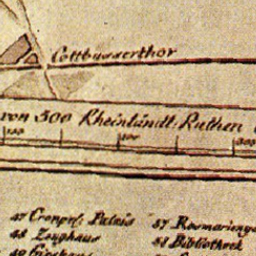 Cottbusserthor
von 500 Rheinländl: Ruthen
47 Cronprs: Palais
48 Zeughaus
57 Rosmarieng
58 Bibliotheck